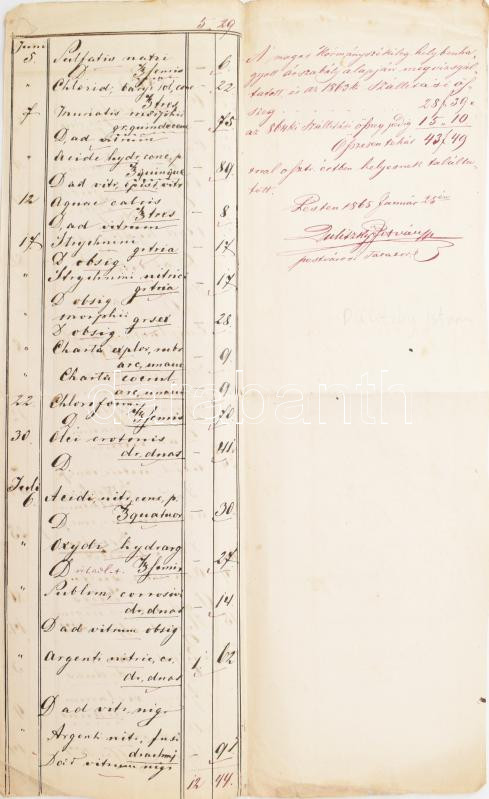 5. 29
Juni
8. Sulfatis natri
D. ℥ semis – 6.
" Chlorid, bary, sol, conc – 22
℥ tres
7 Muriatis morphii – 75
gr. quindecem
D, ad vitrum
" Acidi hydr, conc, p.
℥ quinque – 89
D ad vitr, epist, vitr
12 Aquae calcis
℥ tres – 8
D, ad vitrum
17 Strychnini
grtria – 17
D obsig
" Strychnini nitrici
grtria – 17
D obsig
" morphii grsex – 28.
D obsig.
" Charta explor, rubr – 9.
arc, unam
" Charta
arc, unam – 9
22. Chloroformii
D. ℥ semis – 70
30. Olei crotonis
dr, duas – 41.
D.
Juli
6. Acidi, nitr, conc, p.
D ℥ quatuor – 30.
" Oxydi, hydrarg
D ℥ semis – 27
" Sublim, corrosivi – 14
dr, duas
D ad vitrum obsig
" Argenti nitric, cr, 1 62
dr, duas
D ad vitr, nigr
" Argenti nitr, fusi
drachmj – 91
D ad vitrum nigr
12 44.
A magas Kormányszékileg helybenha-
gyott árszabály alapján megvizsgál-
tatott, és az 1863ki szállítási ösz-
szeg 28 f 39 x
az 1864ki szállítási összeg pedig 15 – 10
Összesen tehát 43 f 49
o. é. értben helyesnek találta-
tott.
Pesten 1865 Január 25én
Dulitzky István
Dulitzky István
darabanth